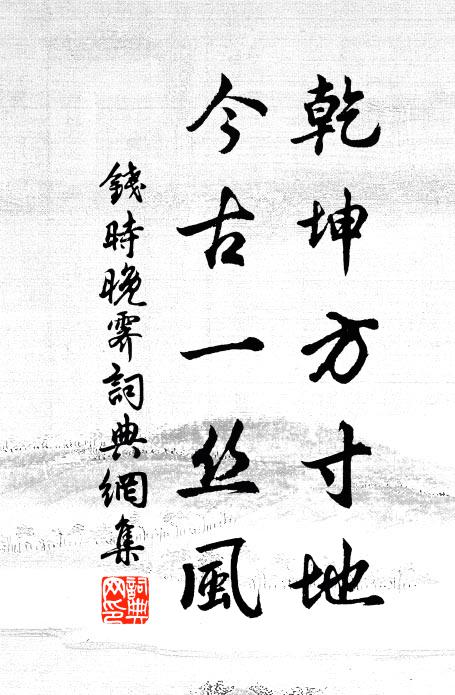 乾坤方寸地
今古一丝風
錢時晚霽詞典網集
詞典
网印